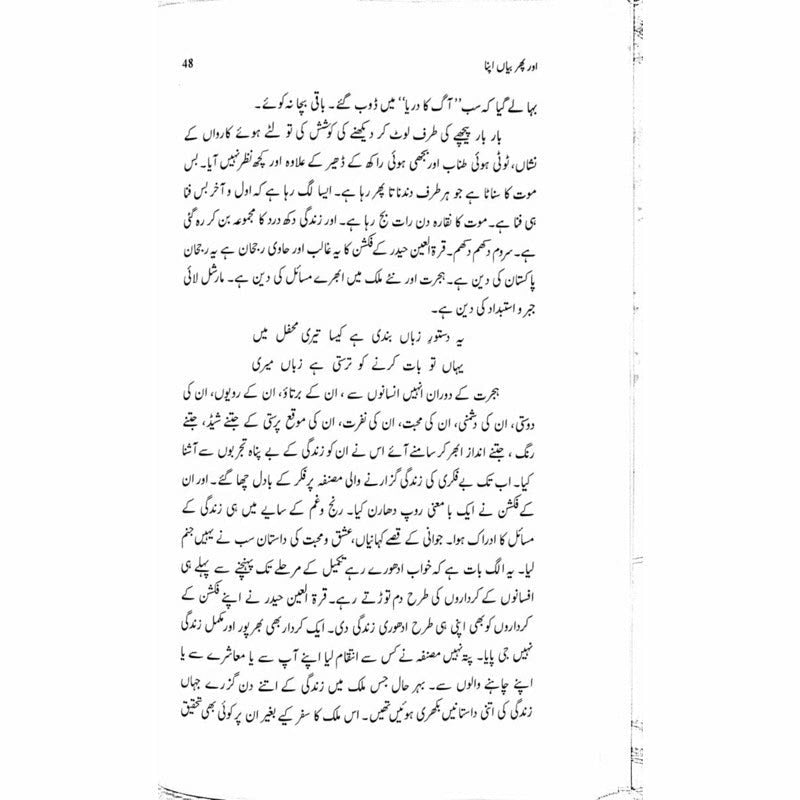 اور پھر بیاں اپنا 48
بہا لے گیا کہ سب ’’آگ کا دریا‘‘ میں ڈوب گئے۔ باقی بچا نہ کوئے۔
بار بار پیچھے کی طرف لوٹ کر دیکھنے کی کوشش کی تو لٹے ہوئے کارواں کے
نشاں، ٹوٹی ہوئی طناب اور بجھی ہوئی راکھ کے ڈھیر کے علاوہ اور کچھ نظر نہیں آیا۔ بس
موت کا سناٹا ہے جو ہر طرف دندناتا پھر رہا ہے۔ ایسا لگ رہا ہے کہ اول و آخر بس فنا
ہی فنا ہے۔ موت کا نقارہ دن رات بج رہا ہے۔ اور زندگی دکھ درد کا مجموعہ بن کر رہ گئی
ہے۔ سروم دکھم دکھم۔ قرۃ العین حیدر کے فکشن کا یہ غالب اور حاوی رجحان ہے یہ رجحان
پاکستان کی دین ہے۔ ہجرت اور نئے ملک میں ابھرے مسائل کی دین ہے۔ مارشل لائی
جبر و استبداد کی دین ہے۔
یہ دستورِ زباں بندی ہے کیسا تیری محفل میں
یہاں تو بات کرنے کو ترستی ہے زباں میری
ہجرت کے دوران انہیں انسانوں سے، ان کے برتاؤ، ان کے رویوں، ان کی
دوستی، ان کی دشمنی، ان کی محبت، ان کی نفرت، ان کی موقع پرستی کے جتنے شیڈ، جتنے
رنگ، جتنے انداز ابھر کر سامنے آئے اس نے ان کو زندگی کے بے پناہ تجربوں سے آشنا
کیا۔ اب تک بے فکری کی زندگی گزارنے والی مصنفہ پر فکر کے بادل چھا گئے۔ اور ان
کے فکشن نے ایک با معنی روپ دھارن کیا۔ رنج و غم کے سایے میں ہی زندگی کے
مسائل کا ادراک ہوا۔ جوانی کے قصے کہانیاں، عشق و محبت کی داستان سب نے یہیں جنم
لیا۔ یہ الگ بات ہے کہ خواب ادھورے رہے تکمیل کے مرحلے تک پہنچنے سے پہلے ہی
افسانوں کے کرداروں کی طرح دم توڑتے رہے۔ قرۃ العین حیدر نے اپنے فکشن کے
کرداروں کو بھی اپنی ہی طرح ادھوری زندگی دی۔ ایک کردار بھی بھرپور اور مکمل زندگی
نہیں جی پایا۔ پتہ نہیں مصنفہ نے کس سے انتقام لیا اپنے آپ سے یا معاشرے سے یا
اپنے چاہنے والوں سے۔ بہر حال جس ملک میں زندگی کے اتنے دن گزرے جہاں
زندگی کی اتنی داستانیں بکھری ہوئیں تھیں۔ اس ملک کا سفر کیے بغیر ان پر کوئی بھی تحقیق